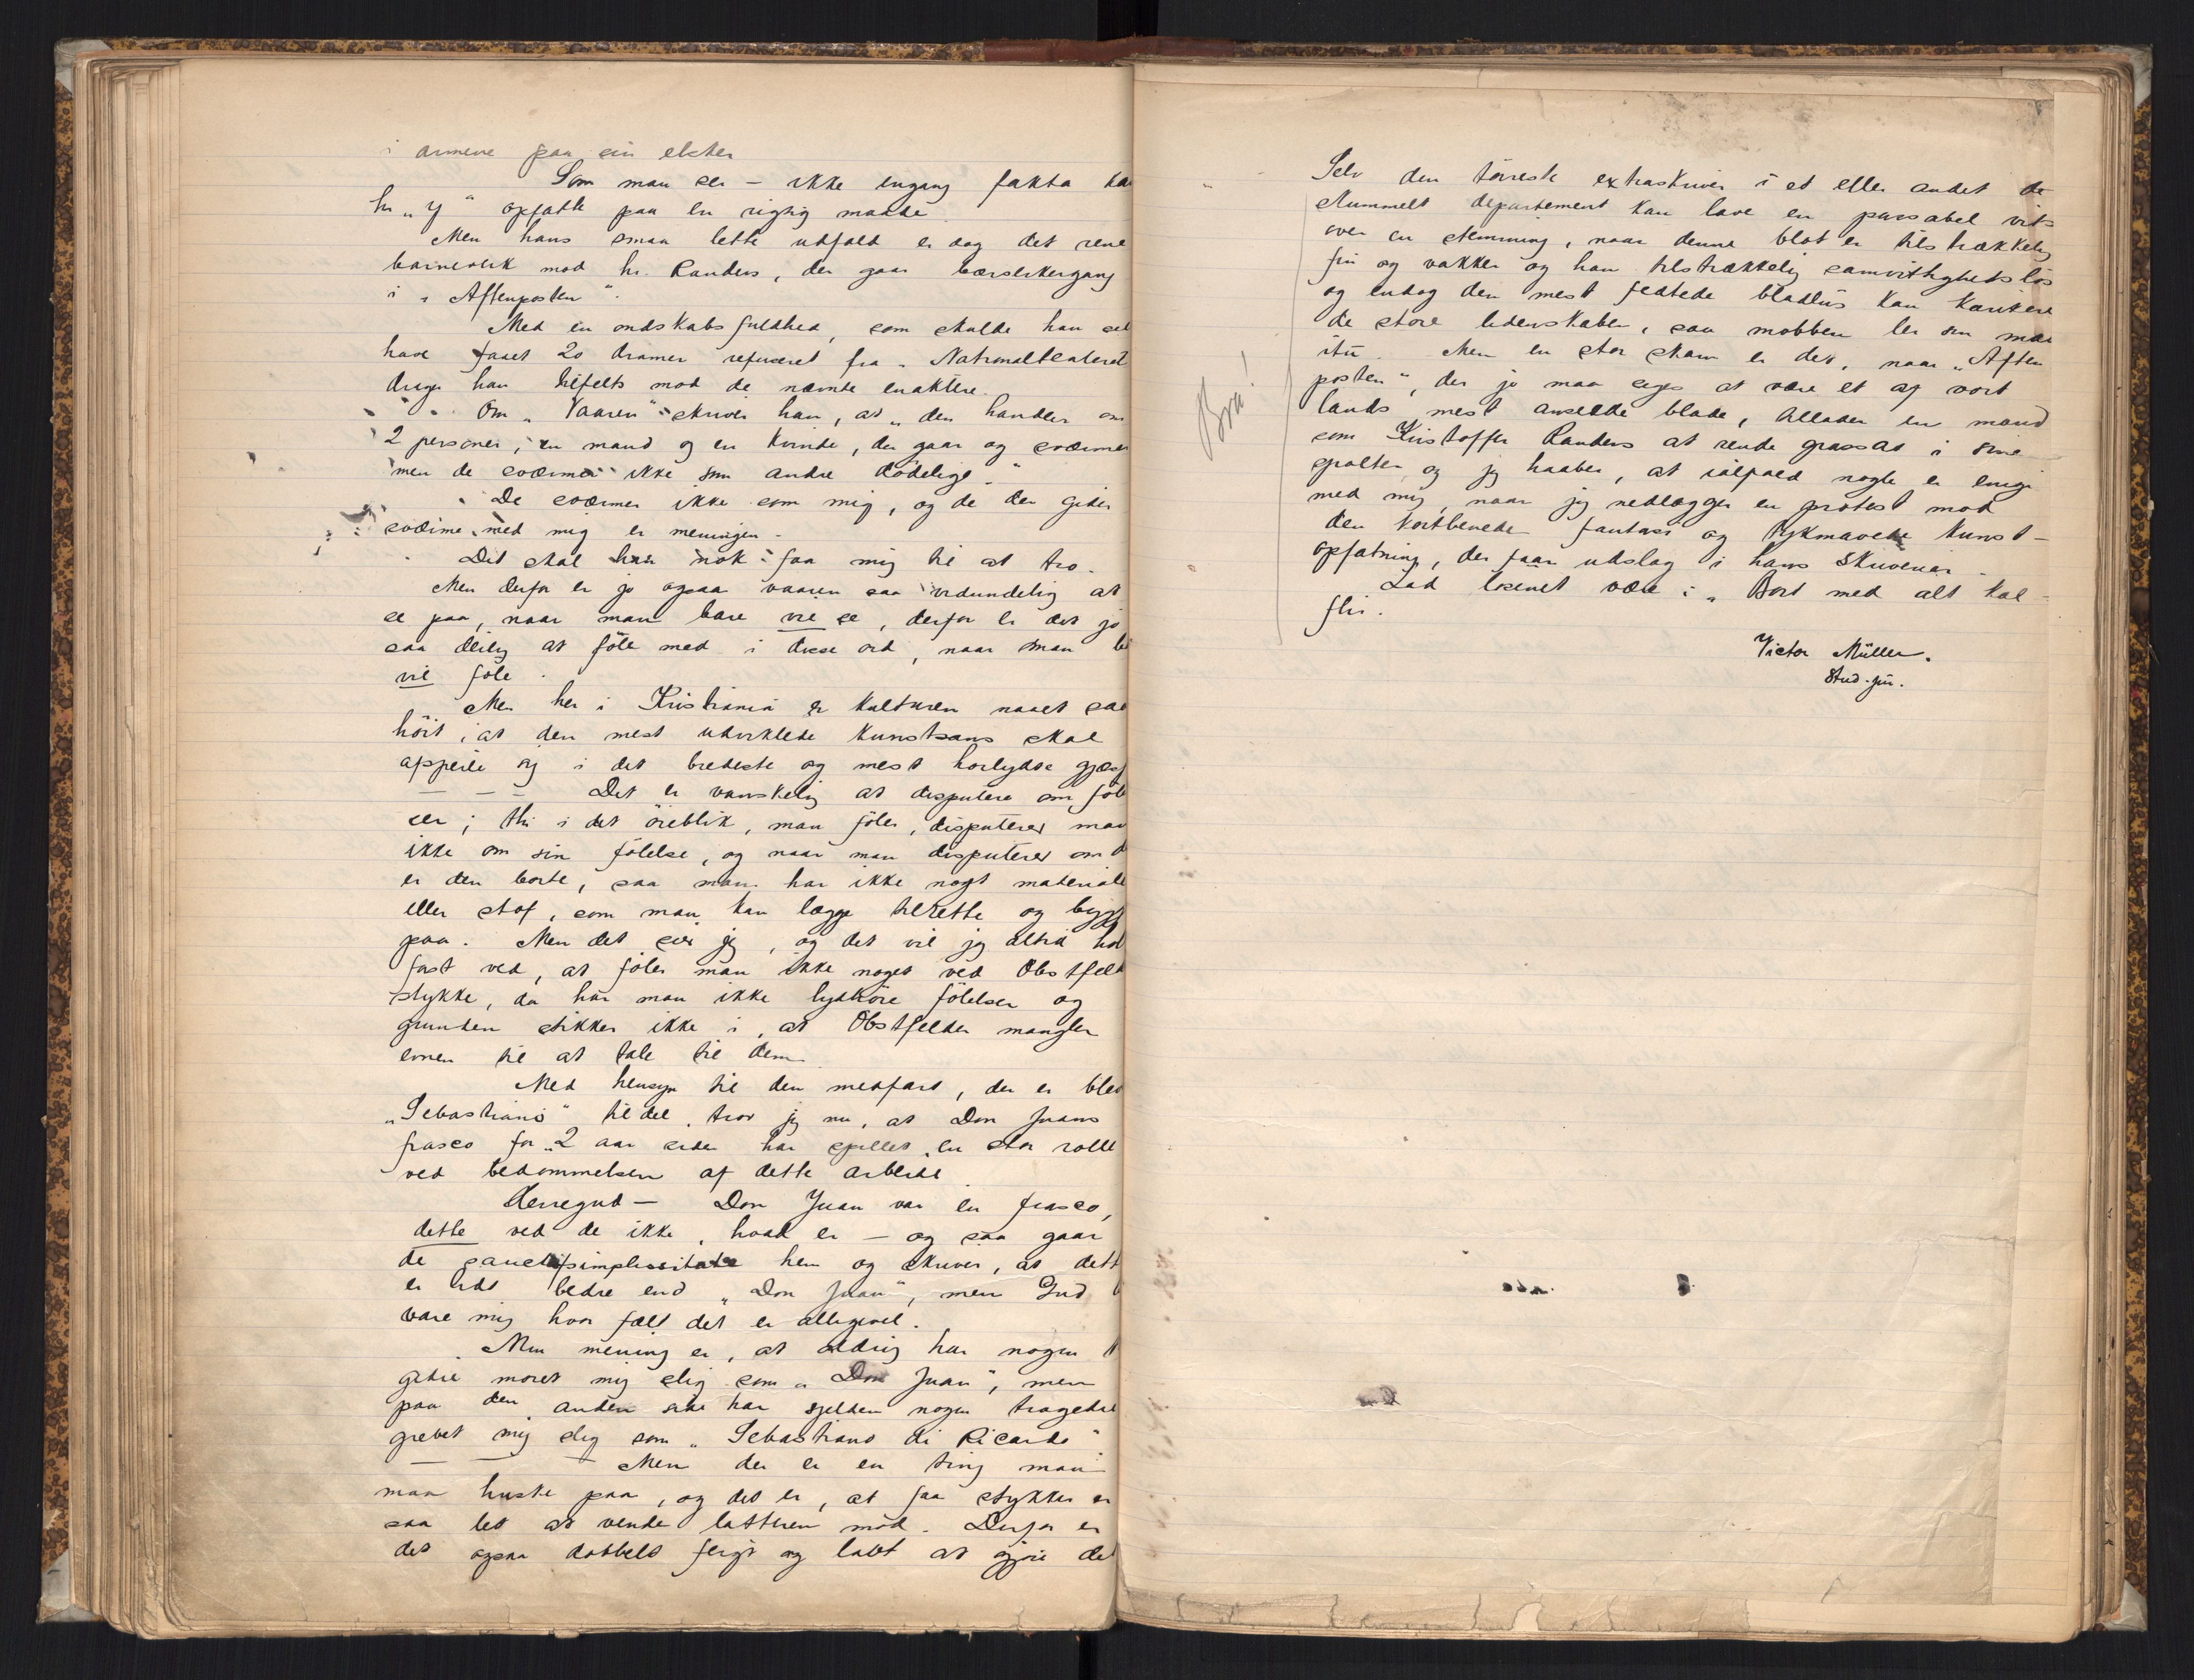 i armene paa sin elsker
Som man ser – ikke engang fakta ka
hr „y“ opfatte paa en rigtig maade.
Men hans smaa lette udfald er dog det rene
barneværk mod hr. Randers, der gaar bærsærkergang
i „Aftenposten“.
Med en ondskabsfuldhed, som skulde han sel
have faaet 20 dramer refuseret fra „Nationaltheatret
drager han tilfelts mod de nævnte enaktere.
Om „Vaaren“ skriver han, at „den handler om
2 personer, en mand og en kvinde, der gaar og sværmer
men de sværmer ikke som andre dødelige.“
De sværmer ikke som mig, og de der gider
sværme med mig er meningen.
Det skal han nok faa mig til at tro.
Men derfor er jo ogsaa vaaren saa vidunderlig at
se paa, naar man bare vil se, derfor er det jo
saa deilig at føle med i disse ord, naar man b
vil føle.
Men her i Kristiania er kulturen naaet saa
høit, at den mest udviklede kunstsans skal
afspeile sig i det bredeste og mest høilydte gjæsp
– – – Det er vanskelig at disputere om føl
ser; thi i det øieblik, man føler, disputerer man
ikke om sin følelse, og naar man disputerer om d
er den borte, saa man har ikke nogt materiale
eller stof, som man kan lægge tilrette og bygg
paa. Men det sier jeg, og det vil jeg altid hol
fast ved, at føler man ikke noget ved Obstfeld
stykke, da har man ikke lydhøre følelser og
grunden stikker ikke i, at Obstfelder mangler
evnen til at tale til dem.
Med hensyn til den medfart, der er blev
„Sebastiano“ tildel, tror jeg nu, at Don Juans
fiasco for 2 aar siden har spillet en stor rolle
ved bedømmelsen af dette arbeide
Herregud – Don Juan var en fiasco,
dette ved de ikke, hvad er – og saa gaar
de sancta simplicitate hen og skriver, at dett
er lidt bedre end „Don Juan“, men Gud b
vare mig hvor fælt det er alligevel.
Min mening er, at aldrig har nogen t
gedie moret mig slig som „Don Juan“, men
paa den anden side har sjelden nogen tragedie
grebet mig slig som „Sebastiano di Ricardo“
– – – Men der er en ting man
maa huske paa, og det er, at faa stykker er
saa let at vende latteren mod. Derfor er
det ogsaa dobbelt feigt og lavt at gjøre det
Selv den tørreste extraskriver i et eller andet de
stummelt departement kan lave en passabel vits
over en stemning, naar denne blot er tilstrækkelig
fin og vakker og han tilstrækkelig samvittighedsløs
og endog den mest fedtede bladlus kan karikere
de store lidenskaber, saa mobben ler sin mave
itu. Men en stor skam er det, naar „Aften
posten“, der jo maa siges at være et af vort
lands mest anseede blade, tillader en mand
som Kristoffer Randers at rende grassat i sine
spalter og jeg haaber, at ialfald nogle er enige
med mig, naar jeg nedlægger en protest mod
den kortbenede fantasi og tykmavede kunst-
opfatning, der faar udslag i hans skriverier.
Lad løsenet være: „Bort med alt kal-
fleri.
Victor Müller.
Stud. jur.
Bra!